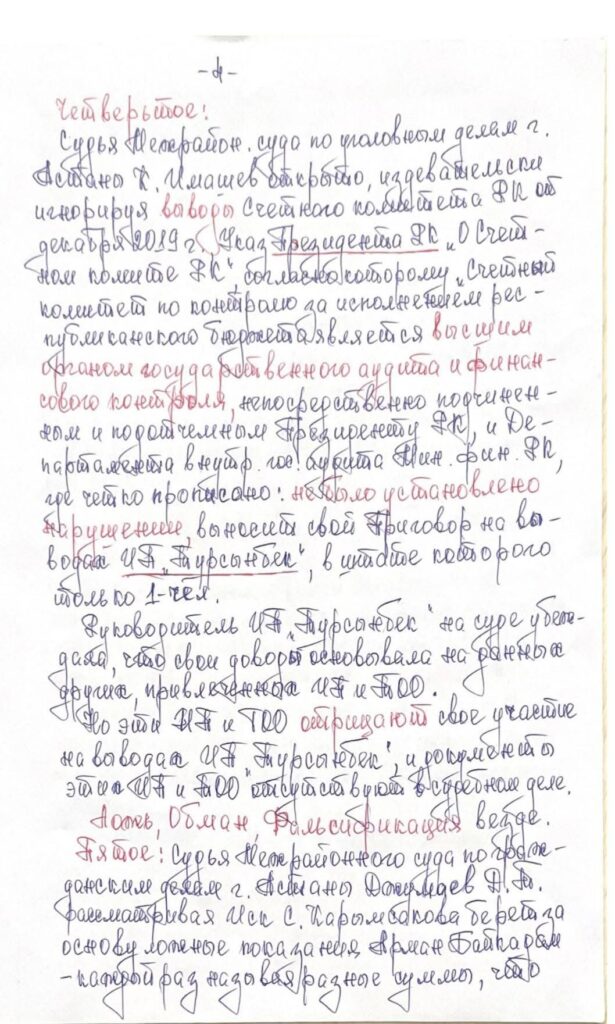 -4-
Четвертое:
Судья Межрайон. суда по уголовным делам г.
Астаны К. Имашев открыто, издевательски
игнорируя выводы Счетного комитета РК от
декабря 2019 г., Указ Президента РК „О Счет-
ном комите РК", согласно которому „Счетный
комитет по контролю за исполнением рес-
публиканского бюджета является высшим
органом государственного аудита и финан-
сового контроля, непосредственно подчинен-
ным и подотчетным Президенту РК, и Де-
партамента внутр. гос. аудита Мин. фин. РК,
где четко прописано: не было установлено
нарушение, выносит свой Приговор на вы-
водах ИП „Турсынбек", в штате которого
только 1-чел.
Руководитель ИП „Турсынбек" на суде убеж-
дала, что свои доводы основывала на данных
других, привлеченных ИП и ТОО.
Но эти ИП и ТОО отрицают свое участие
на выводах ИП „Турсынбек", и документы
этих ИП и ТОО отсутствуют в судебном деле.
Ложь, Обман, Фальсификация везде.
Пятое: Судья Межрайонного суда по граж-
данским делам г. Астаны Джумаев Д.Т.
рассматривая Иск С. Карымсакова берет за
основу ложные показания Арман Байкадам
- каждый раз называя разные суммы, что